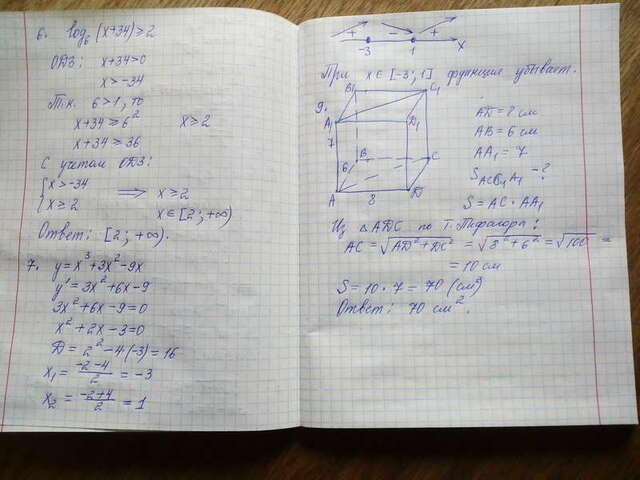 6. log₆(x+34) ≥ 2
ОДЗ: x+34>0
x > -34
Т.к. 6>1, то
x+34 ≥ 6² x ≥ 2
x+34 ≥ 36
С учетом ОДЗ:
{x > -34
{x ≥ 2 ⟹ x ≥ 2
x ∈ [2; +∞)
Ответ: [2; +∞).
7. y = x³+3x²-9x
y' = 3x²+6x-9
3x²+6x-9=0
x²+2x-3=0
D = 2²-4·(-3) = 16
x₁ = (-2-4)/2 = -3
x₂ = (-2+4)/2 = 1
+ - +
-3 1 x
При x ∈ [-3; 1] функция убывает.
9.
B1 C1
A1 D1
7
B C
6
A 8 D
AD = 8 см
AB = 6 см
AA₁ = 7
S_ACC₁A₁ - ?
S = AC · AA₁
Из △ADC по Т. Пифагора:
AC = √(AD²+DC²) = √(8²+6²) = √100 =
= 10 см
S = 10 · 7 = 70 (см²)
Ответ: 70 см².